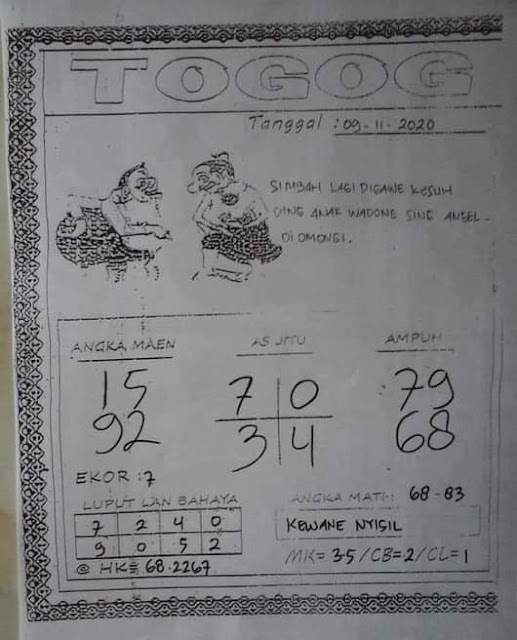 TOGOG
Tanggal : 09-11-2020
SIMBAH LAGI DIGAWE KESUH
DING ANAK WADONE SING ANGEL.
DI OMONGI.
ANGKA MAEN
AS JITU
AMPUH
15
7 0
79
92
3 4
68
EKOR : 7
LUPUT LAN BAHAYA
ANGKA MATI : 68 - 83
7 2 4 0
KEWANE NYISIL
9 0 5 2
MK= 35 / CB=2 / CL=1
@ HK= 68.2267